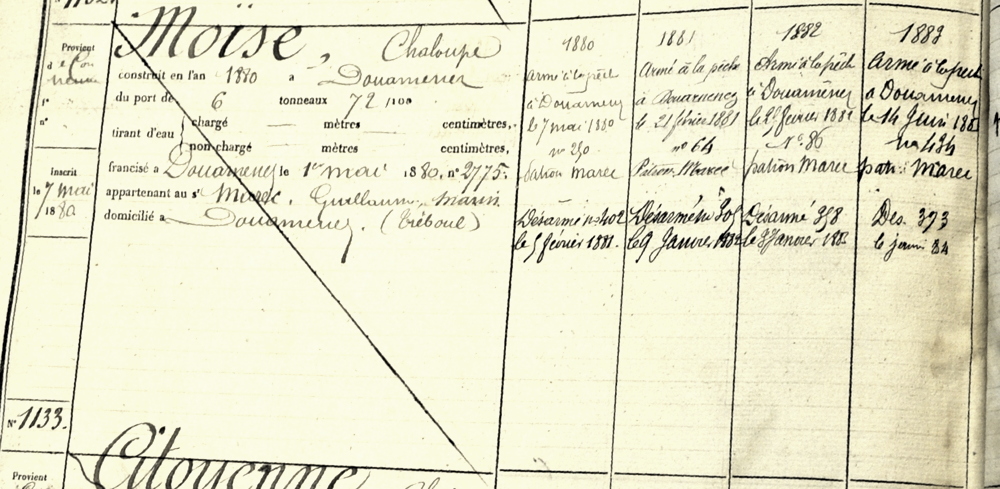 Moïse, Chaloupe
construit en l'an 1880 a Douarnenez
du port de 6 tonneaux 72/100
tirant d'eau
chargé — mètres centimètres,
non chargé mètres centimètres,
francisé a Douarnenez le 1er mai 1880, n° 2775.
appartenant au sr Marec, Guillaume, marin
domicilié a Douarnenez. (Tréboul)
Provient
n°
Inscrit
le 7 mai
1880
1880
Armé à la pêche
à Douarnenez
le 7 mai 1880
n° 250
patron Marec
Désarmé n° 402
le 5 février 1881.
1881
Armé à la pêche
à Douarnenez
le 21 février 1881
n° 64
Patron Marec
Désarmé
le 9 Janvier 1882
1882
Armé à la pêch
à Douarnenez
février 1882
N° 86
patron Marec
Désarmé 358
Janvier 1883
1883
Armé à la pêch
à Douarnenez
le 14 Juin
n° 434
patr. Marec
Des. 393
le janvi 84
N° 1133.
Provient
Citoyenne